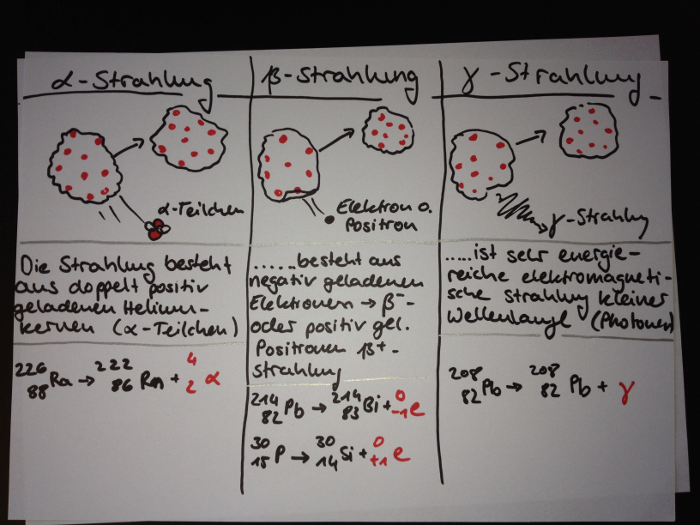 α-Strahlung
α-Teilchen
Die Strahlung besteht
aus doppelt positiv
geladenen Helium-
kernen (α-Teilchen)
²²⁶₈₈Ra → ²²²₈₆Rn + ⁴₂α
β-Strahlung
Elektron o.
Positron
......besteht aus
negativ geladenen
Elektronen → β⁻-
oder positiv gel.
Positronen β⁺-
Strahlung
²¹⁴₈₂Pb → ²¹⁴₈₃Bi + ⁰₋₁e
³⁰₁₅P → ³⁰₁₄Si + ⁰₊₁e
γ-Strahlung
γ-Strahlung
.....ist sehr energie-
reiche elektromagneti-
sche Strahlung kleiner
Wellenlänge (Photonen)
²⁰⁸₈₂Pb → ²⁰⁸₈₂Pb + γ